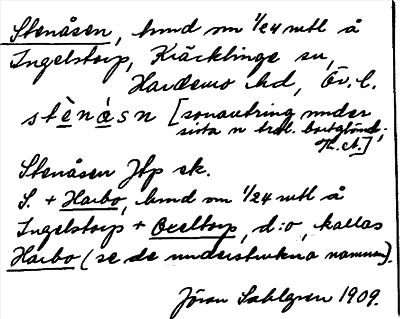 Stenåsen, lund om 1/24 mtl å
Ingelstorp, Kräcklinge sn,
Hardemo hd, Ör. l.
stènåsn [sonantring under
sista n trol. bortglömd;
Stenåsen Jbp ek.
S. + Harbo, lund om 1/24 mtl å
Ingelstorp + Oxeltorp, d:o, kallas
Harbo (se de understrukna namnen).
Jöran Sahlgren 1909.